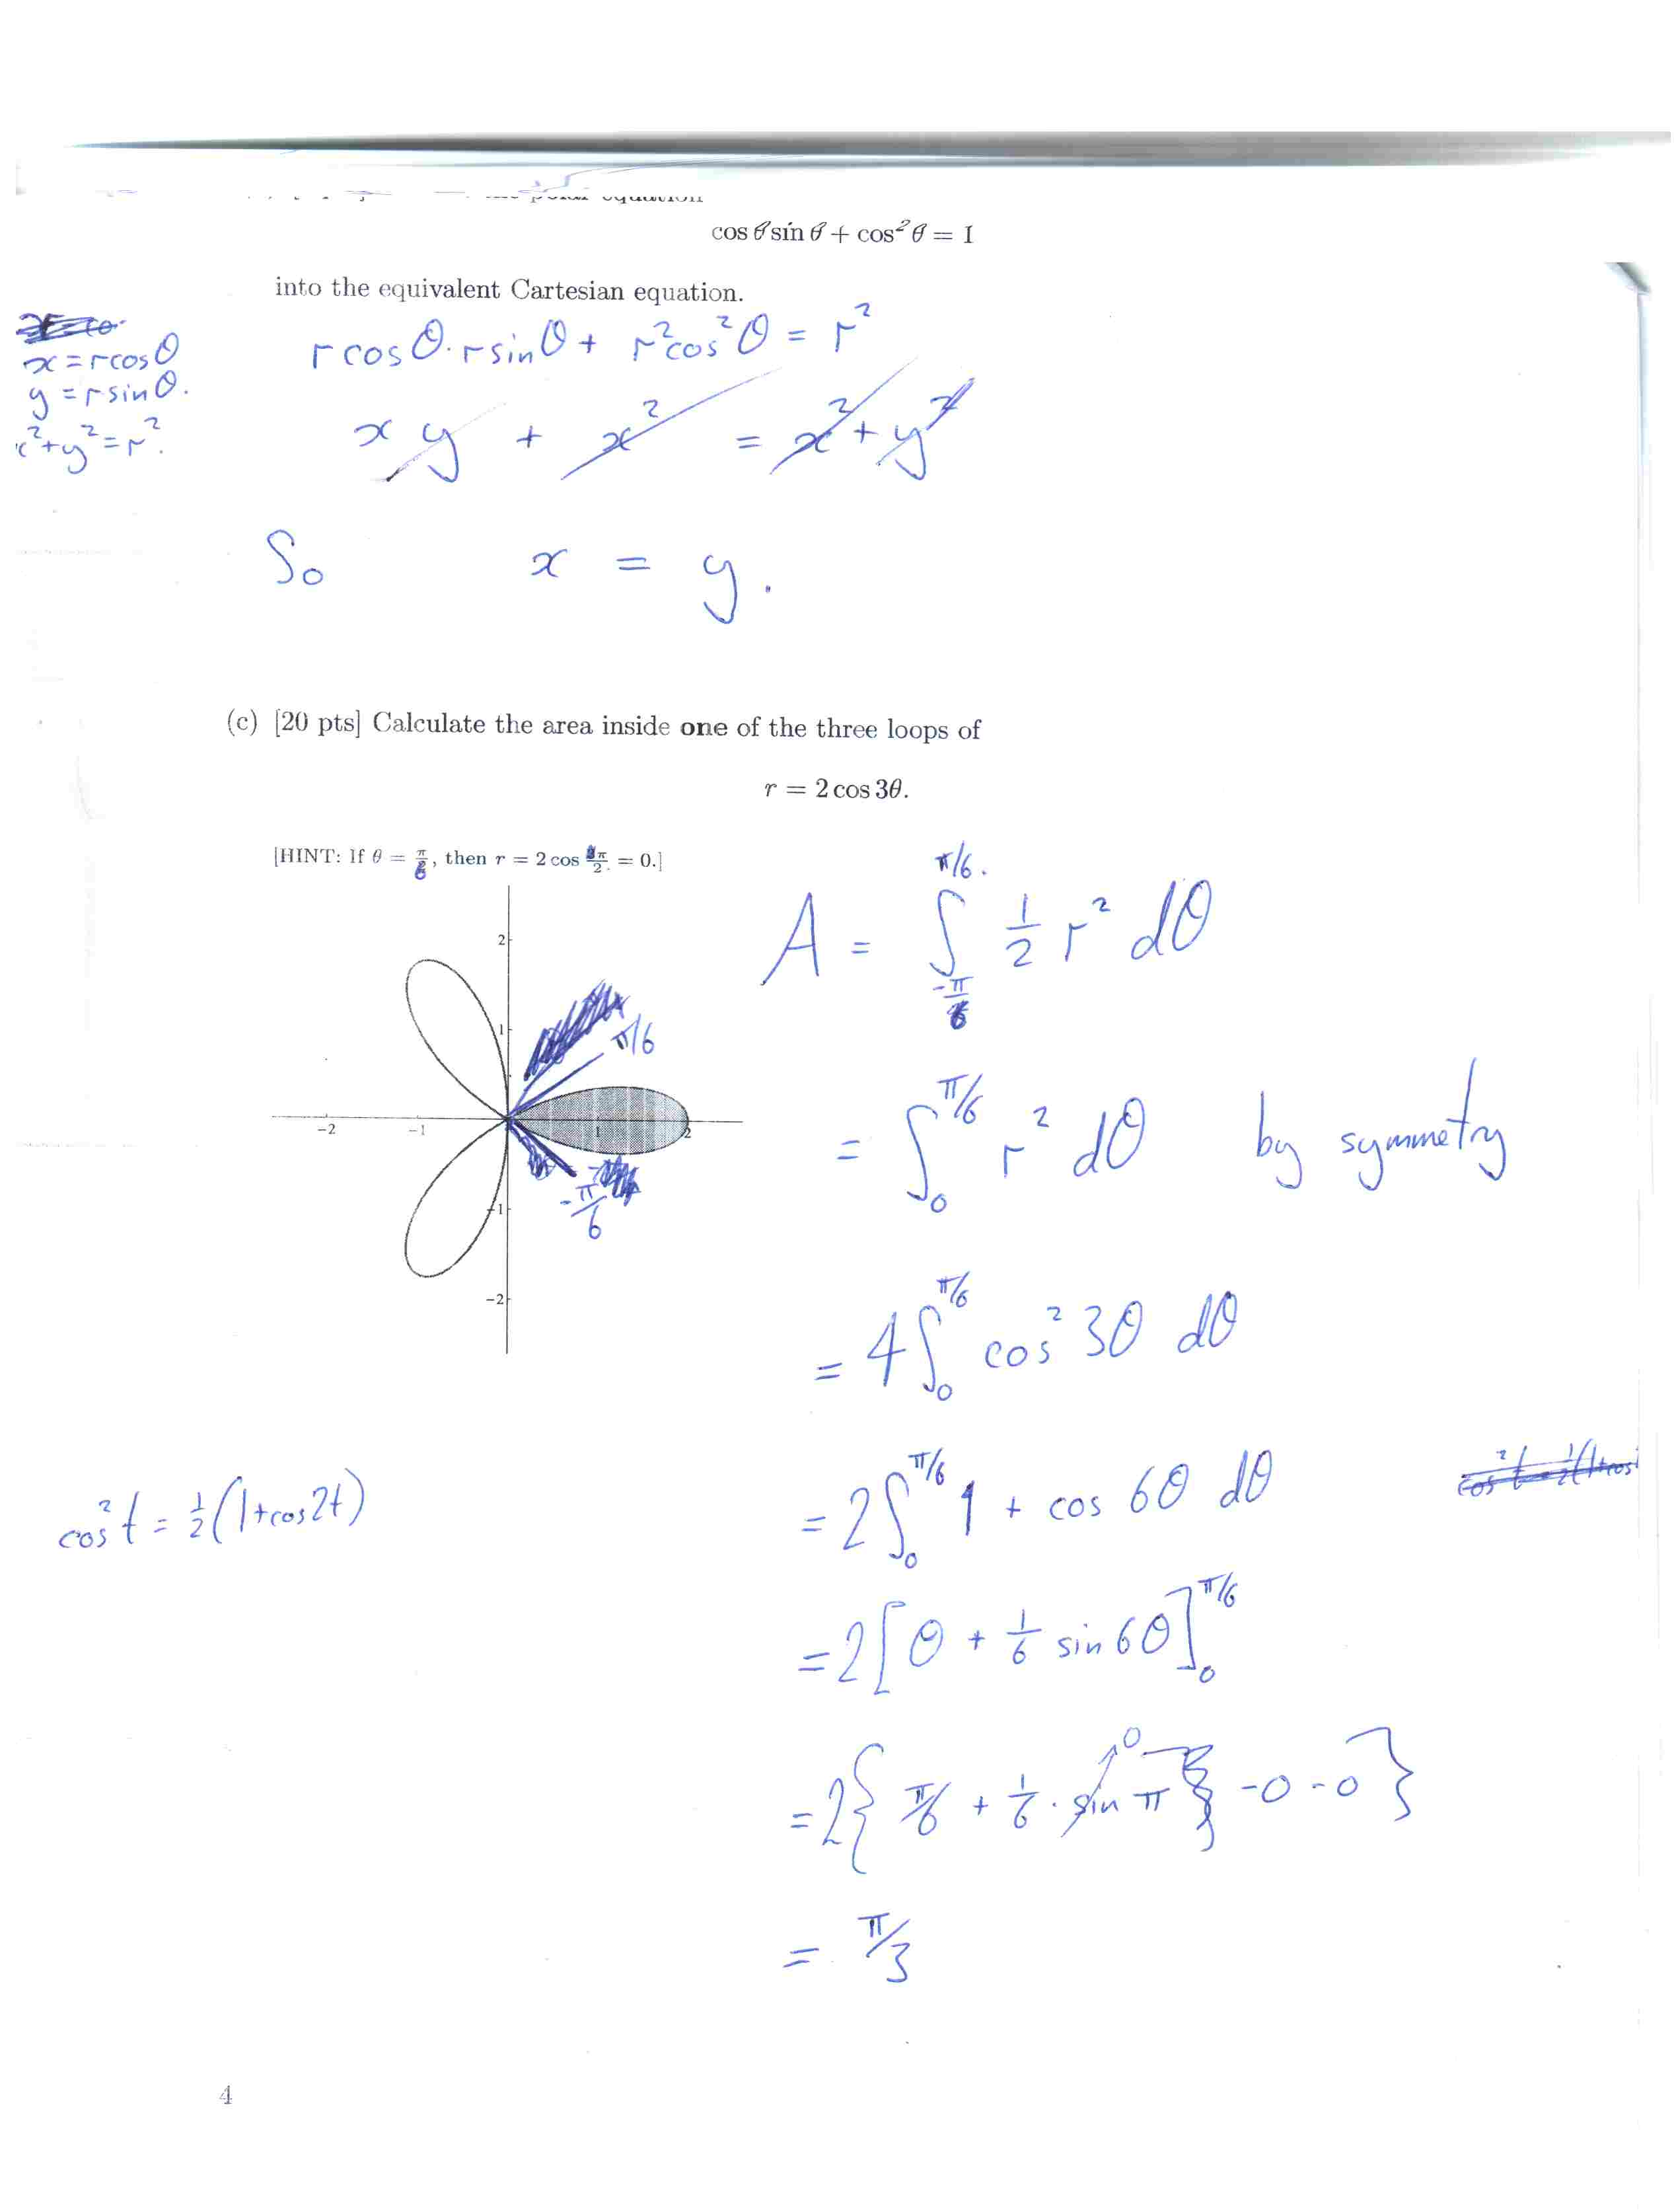 polar equation
cos θ sin θ + cos² θ = 1
into the equivalent Cartesian equation.
x = r cos θ
y = r sin θ.
x² + y² = r².
r cos θ · r sin θ + r² cos² θ = r²
x y + x² = x² + y²
So x = y.
(c) [20 pts] Calculate the area inside one of the three loops of
r = 2 cos 3θ.
[HINT: If θ = π/6, then r = 2 cos π/2 = 0.]
2
1
π/6
-2 -1 1 2
-π/6
-1
-2
A = ∫_{-π/6}^{π/6} 1/2 r² dθ
= ∫_0^{π/6} r² dθ by symmetry
= 4 ∫_0^{π/6} cos² 3θ dθ
cos² t = 1/2 (1 + cos 2t)
= 2 ∫_0^{π/6} 1 + cos 6θ dθ
= 2 [θ + 1/6 sin 6θ]_0^{π/6}
= 2 { π/6 + 1/6 · sin π 0 - 0 - 0 }
= π/3
4